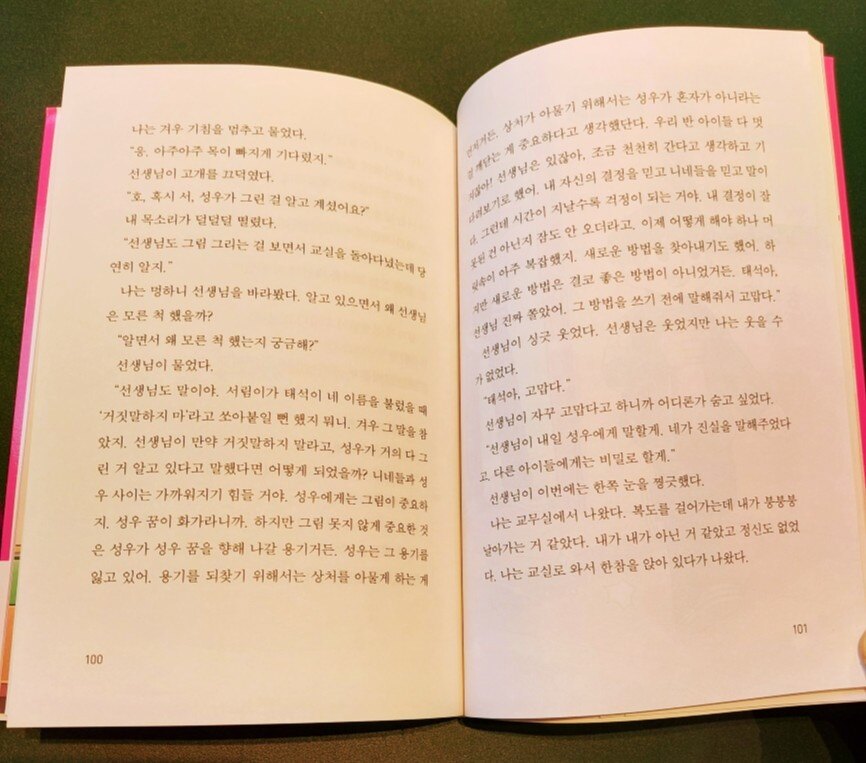 나는 겨우 기침을 멈추고 물었다.
"응. 아주아주 목이 빠지게 기다렸지."
선생님이 고개를 끄덕였다.
"호, 혹시 서, 성우가 그린 걸 알고 계셨어요?"
내 목소리가 덜덜덜 떨렸다.
"선생님도 그림 그리는 걸 보면서 교실을 돌아다녔는데 당
연히 알지."
나는 멍하니 선생님을 바라봤다. 알고 있으면서 왜 선생님
은 모른 척 했을까?
"알면서 왜 모른 척 했는지 궁금해?"
선생님이 물었다.
"선생님도 말이야. 서림이가 태석이 네 이름을 불렀을 때
'거짓말하지 마'라고 쏘아붙일 뻔 했지 뭐니. 겨우 그 말을 참
았지. 선생님이 만약 거짓말하지 말라고, 성우가 거의 다 그
린 거 알고 있다고 말했다면 어떻게 되었을까? 니네들과 성
우 사이는 가까워지기 힘들 거야. 성우에게는 그림이 중요하
지. 성우 꿈이 화가라니까. 하지만 그림 못지 않게 중요한 것
은 성우가 성우 꿈을 향해 나갈 용기거든. 성우는 그 용기를
잃고 있어. 용기를 되찾기 위해서는 상처를 아물게 하는 게
100
먼저거든. 상처가 아물기 위해서는 성우가 혼자가 아니라는
걸 깨닫는 게 중요하다고 생각했단다. 우리 반 아이들 다 멋
지잖아! 선생님은 있잖아, 조금 천천히 간다고 생각하고 기
다려보기로 했어. 내 자신의 결정을 믿고 니네들을 믿고 말이
다. 그런데 시간이 지날수록 걱정이 되는 거야. 내 결정이 잘
못된 건 아닌지 잠도 안 오더라고. 이제 어떻게 해야 하나 머
릿속이 아주 복잡했지. 새로운 방법을 찾아내기도 했어. 하
지만 새로운 방법은 결코 좋은 방법이 아니었거든. 태석아,
선생님 진짜 쫄았어. 그 방법을 쓰기 전에 말해줘서 고맙다."
선생님이 싱긋 웃었다. 선생님은 웃었지만 나는 웃을 수
가 없었다.
"태석아, 고맙다."
선생님이 자꾸 고맙다고 하니까 어디론가 숨고 싶었다.
"선생님이 내일 성우에게 말할게. 네가 진실을 말해주었다
고. 다른 아이들에게는 비밀로 할게."
선생님이 이번에는 한쪽 눈을 찡긋했다.
나는 교무실에서 나왔다. 복도를 걸어가는데 내가 붕붕붕
날아가는 거 같았다. 내가 내가 아닌 거 같았고 정신도 없었
다. 나는 교실로 와서 한참을 앉아 있다가 나왔다.
101